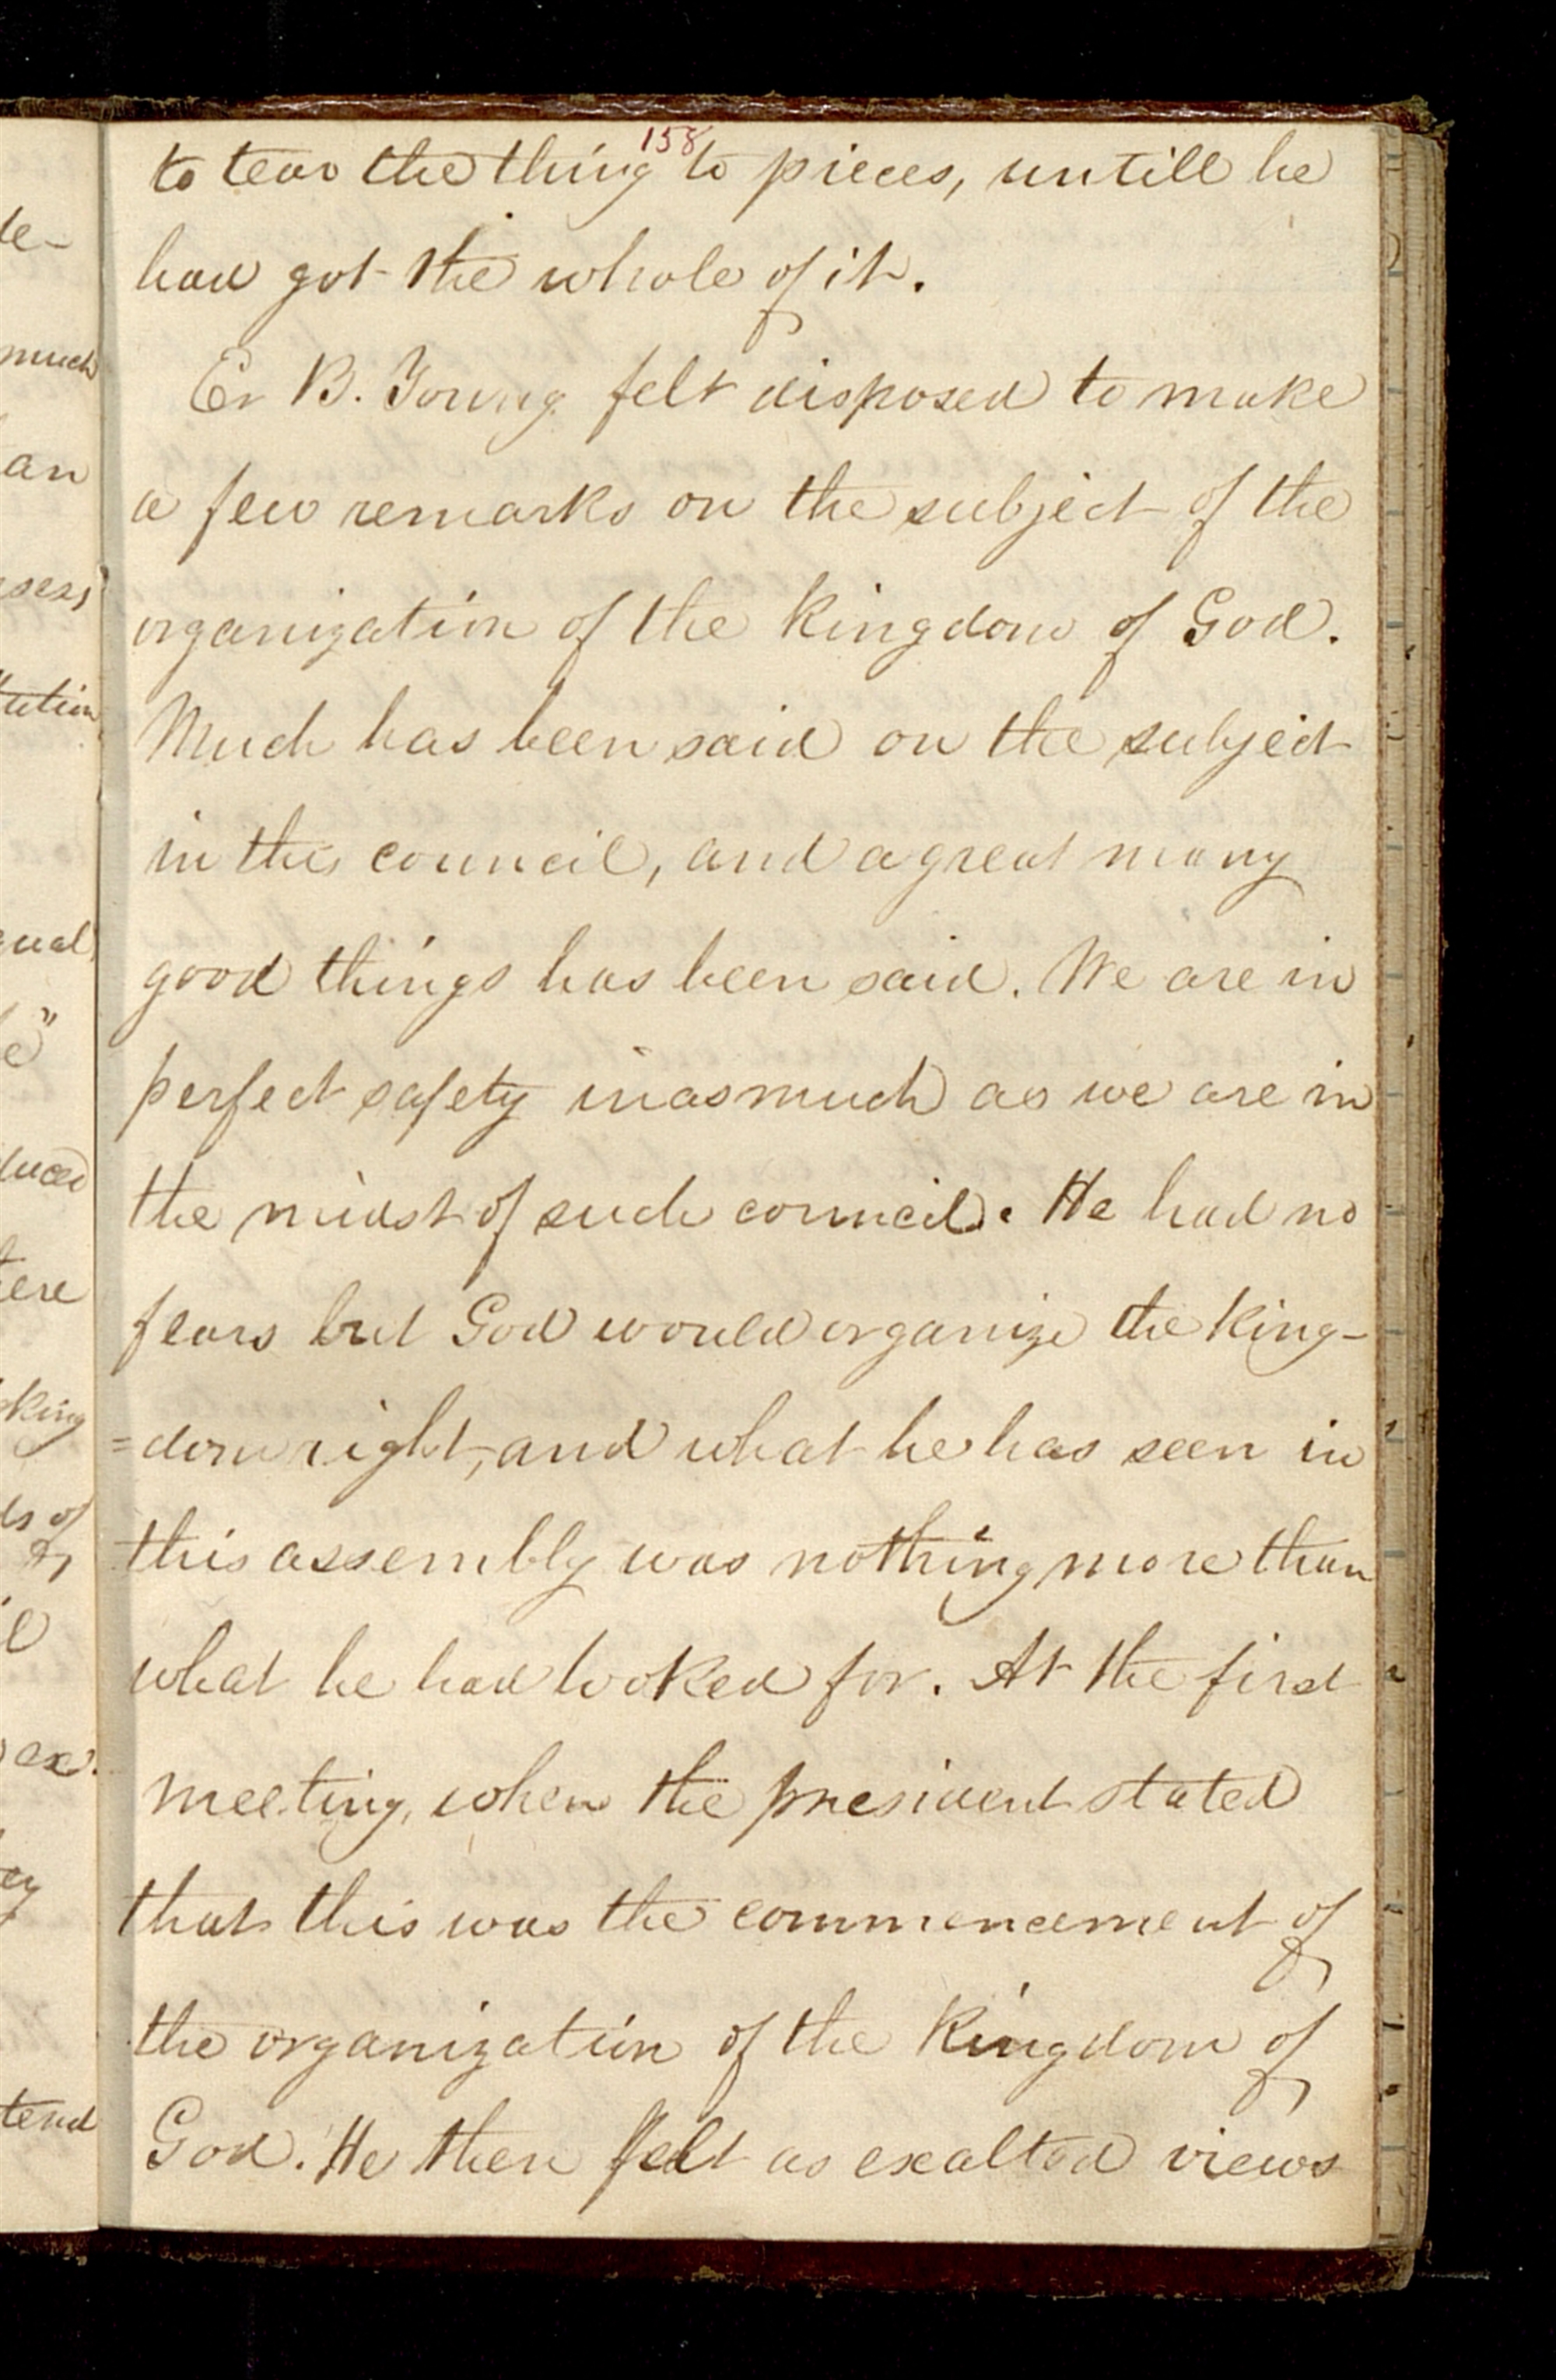 158
to tear the thing to pieces, untill he
had got the whole of it.
Er B. Young felt disposed to make
a few remarks on the subject of the
organization of the kingdom of God.
Much has been said on the subject
in this council, and a great many
good things has been said. We are in
perfect safety inasmuch as we are in
the midst of such council. He had no
fears but God would organize the king-
=dom right, and what he has seen in
this assembly was nothing more than
what he had looked for. At the first
meeting, when the president stated
that this was the commencement of
the organization of the kingdom of
God. He then felt as exalted views